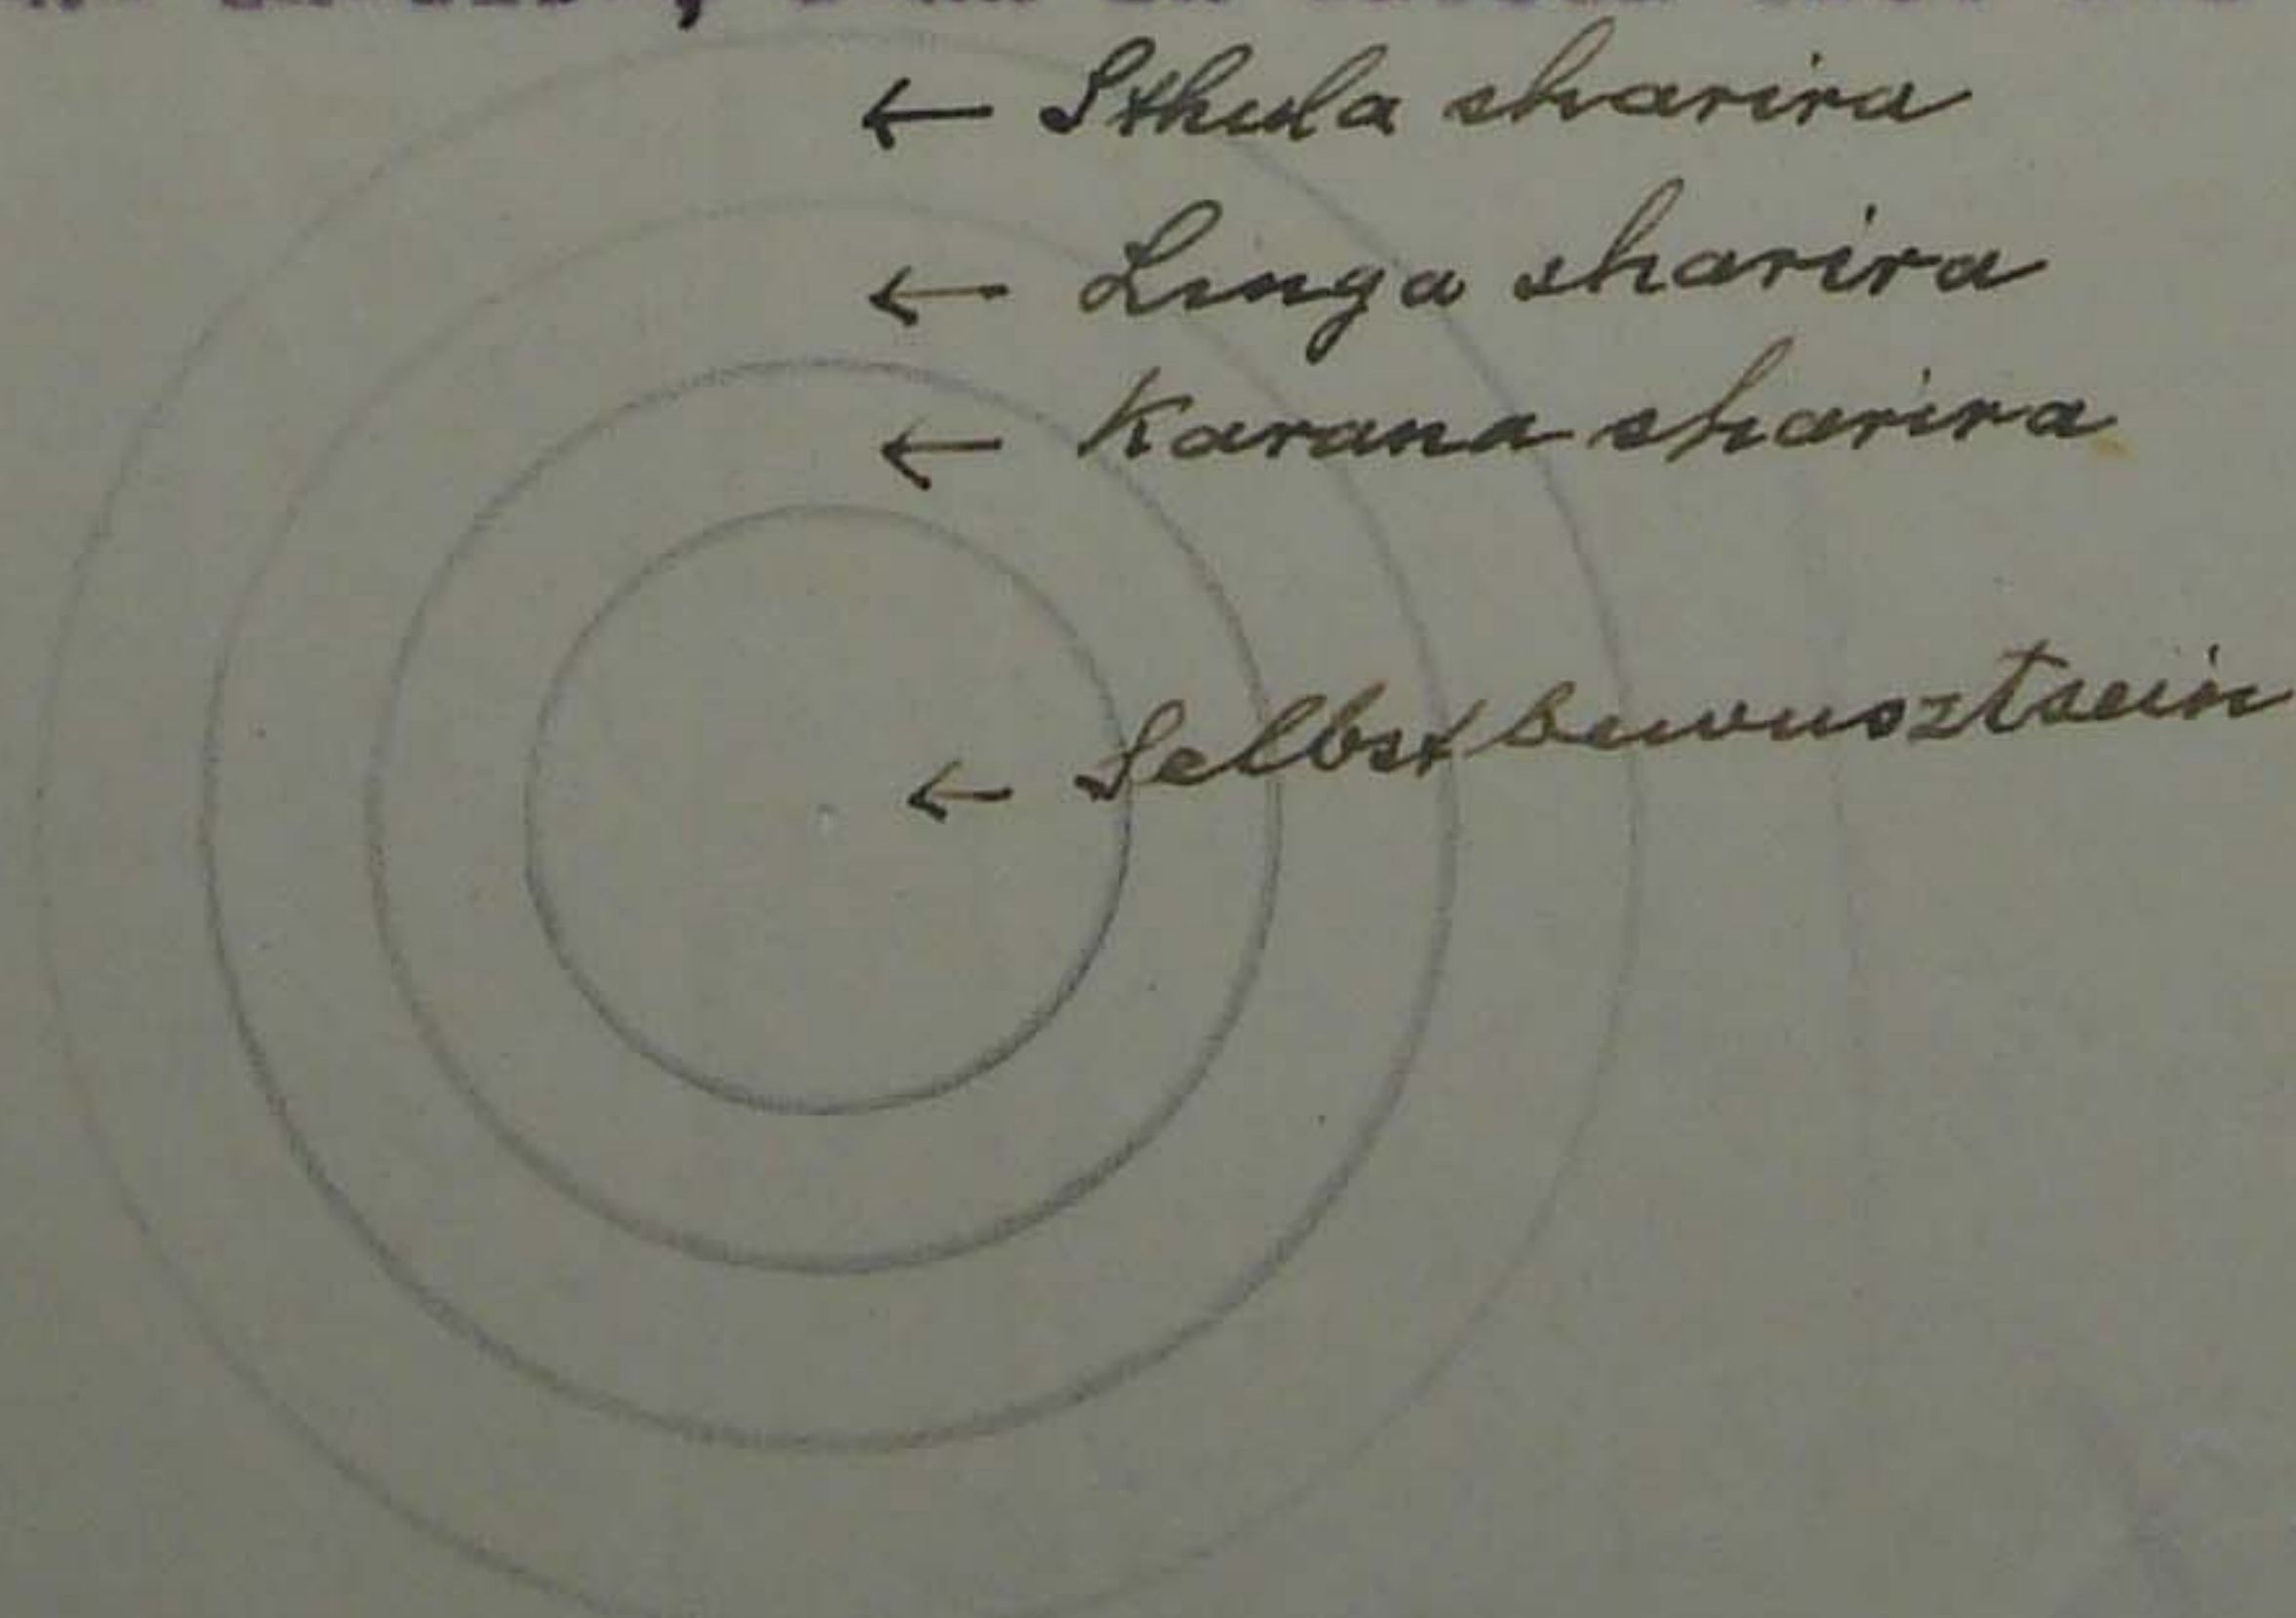 ← Sthula sharira
← Linga sharira
← Karana sharira
← Selbstbewusztsein